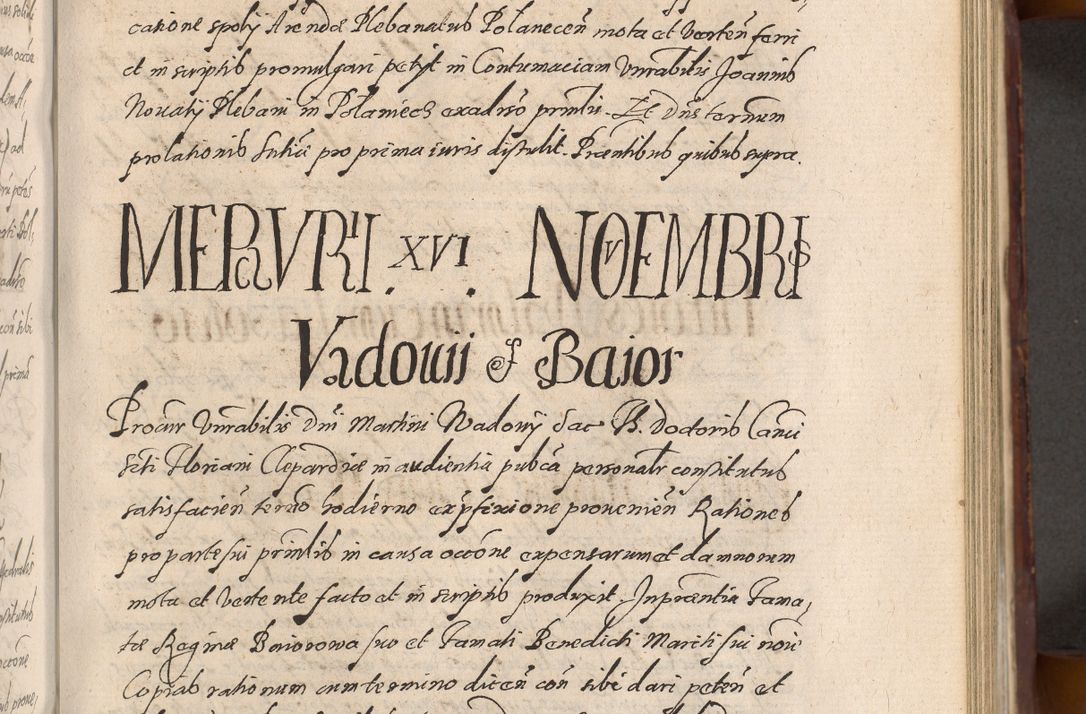 catione spolij Arendæ Plebanatus Polanecen̄ mota et verten̄ ferri
et in scriptis promulgari petijt in Contumaciam Vnrabilis Joannis
Nouatij Plebani in Polaniecz ex aduso prin̄lis. Et Dn̄s terminum
prolationis Sntiæ pro prima iuris distulit. Præntibus quibus supra.
MERCVRII . XVI . NOVEMBRIS
Vadouii & Baior
Procur Vnrabilis Dn̄i Martini Wadouij Sac Th. Doctoris Canci
Scti Floriani Clepardiæ in audientia pub͞ca personalr constitutus
satisfacien̄ termo hodierno ex p͞fixione prouenien̄ Rationes
pro parte sui prin̄lis in causa occōne expensarum et damnorum
mota et vertente facto et in scriptis produxit. In prӕntia Fama,
tæ Reginæ Baiorowa suo et Famati Benedicti Mariti sui noīe
Copias rationum cum termino dicen̄ con̄ sibi dari peten̄ et